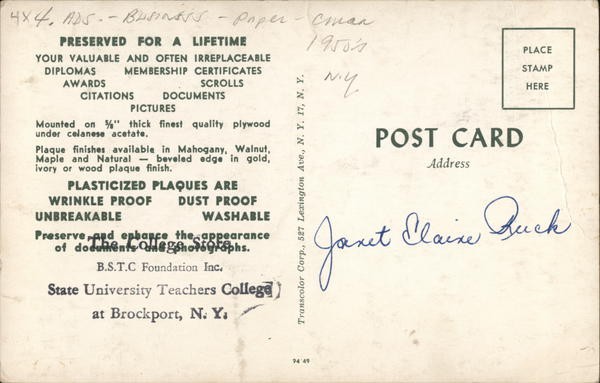 4x4. ADS. - BUSINESS - Paper -
1950's
N.Y
PRESERVED FOR A LIFETIME
YOUR VALUABLE AND OFTEN IRREPLACEABLE
DIPLOMAS MEMBERSHIP CERTIFICATES
AWARDS SCROLLS
CITATIONS DOCUMENTS
PICTURES
Mounted on ⅝" thick finest quality plywood
under celanese acetate.
Plaque finishes available in Mahogany, Walnut,
Maple and Natural — beveled edge in gold,
ivory or wood plaque finish.
PLASTICIZED PLAQUES ARE
WRINKLE PROOF DUST PROOF
UNBREAKABLE WASHABLE
Preserve and enhance the appearance
of documents and photographs.
The College Store
B.S.T.C Foundation Inc.
State University Teachers College
at Brockport, N. Y.
Transcolor Corp., 527 Lexington Ave., N. Y. 17, N. Y.
PLACE
STAMP
HERE
POST CARD
Address
Janet Elaine Ruck
94 49